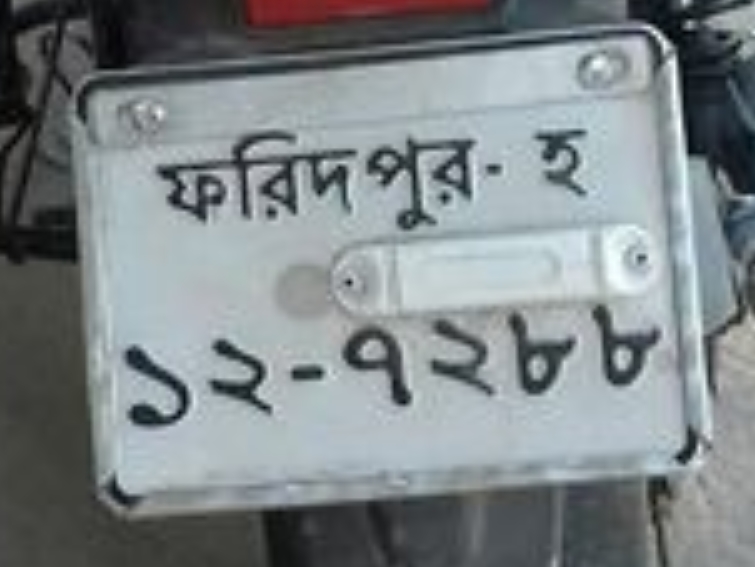 ফরিদপুর- হ
১২-৭২৮৮